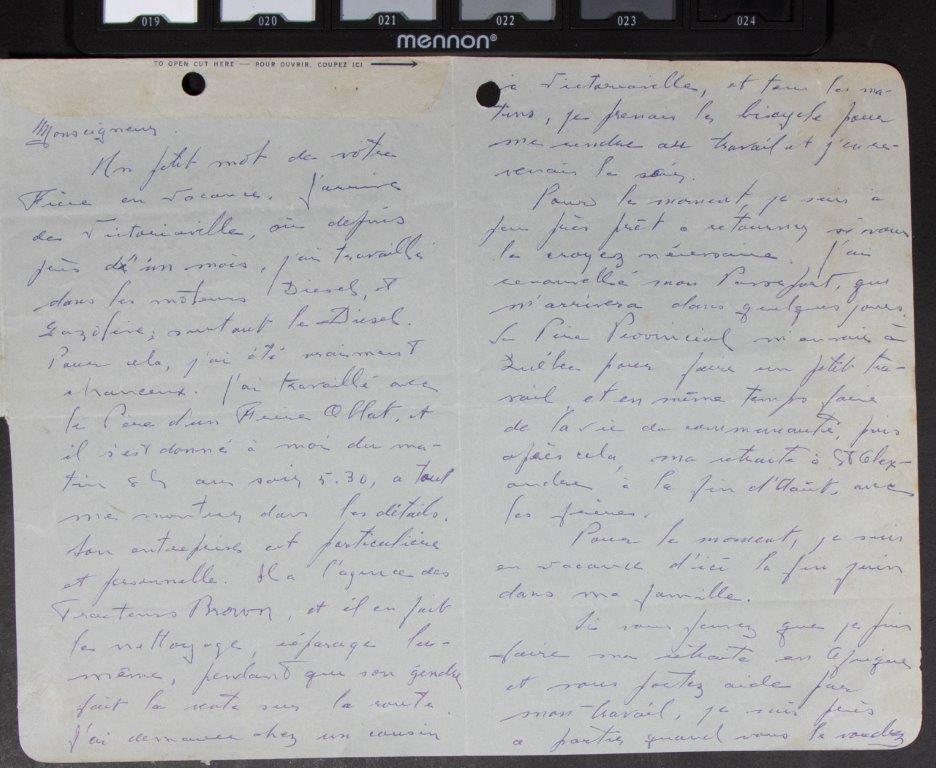 019 020 021 022 023 024
mennon®
TO OPEN CUT HERE — POUR OUVRIR, COUPEZ ICI
Monseigneur
Un petit mot de votre
Frère en vacance. J'arrive
de Victoriaville, où depuis
près d'un mois, j'ai travaillé
dans les moteurs Diesel, et
Gazoline; surtout le Diesel.
Pour cela, j'ai été vraiment
chanceux. J'ai travaillé avec
le Père d'un Frère Oblat, et
il s'est donné à moi du ma-
tin 8 h au soir 5.30, a tout
me montrer dans les détails.
Son entreprise est particulière
et personnelle. Il a l'agence des
Tracteurs Brown, et il en fait
le nettoyage, réparage lui-
même, pendant que son gendre
fait la vente sur la route.
J'ai demeuré chez un cousin
à Victoriaville, et tous les ma-
tins, je prenais le bicycle pour
me rendre au travail et j'en re-
venais le soir.
Pour le moment, je suis à
peu près prêt a retourner si vous
le croyez nécessaire. J'ai
renouvellé mon Passeport, qui
m'arrivera dans quelques jours.
Le Père Provincial m'envoie à
Québec pour faire un petit tra-
vail et en même temps faire
de la vie de communauté, puis
après cela, ma retraite à St Alex-
andre à la fin d'Août, avec
les frères.
Pour le moment, je suis
en vacance d'ici la fin juin
dans ma famille.
Si vous jugez que je puis
faire ma retraite en Afrique
et vous portez aide par
mon travail, je suis près
a partir quand vous le voudrez